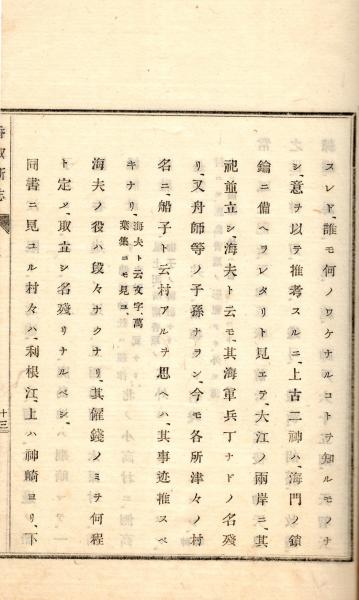 スレド、誰モ何ノワケナルコトヲ知ルモノナ
シ、意ヲ以テ推考スルニ、上古二神ハ、海門ノ鎮
鑰ニ備ヘヲレタリト見エテ、大江ノ兩岸ニ、其
祀並立シ、海夫ト云モ、其海軍兵丁ナドノ名殘
リ、又舟師等ノ子孫ナラン、今モ各所津々ノ村
名ニ、船子ト云村アルヲ思ヘハ、其事迹推スベ
キナリ、海夫ト云文字、萬
葉集ニモ見ユ、
海夫ノ役ハ段々ナクナリ、其催錢ノミヲ何程
ト定メ、取立シ名殘リナルベシ、
同書ニ見ユル村々ハ、利根江、上ハ神崎ヨリ、下
香取新志
十三